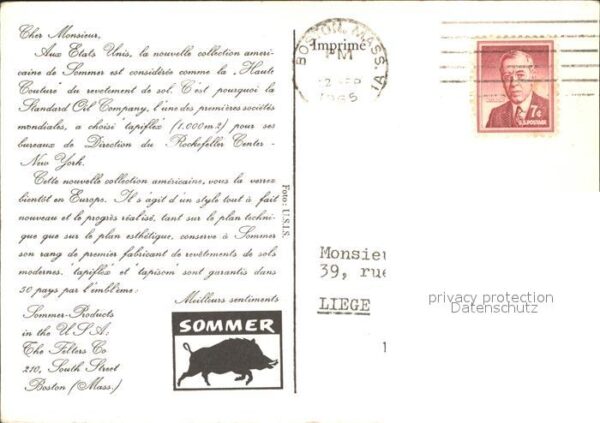 Cher Monsieur,
Aux Etats Unis, la nouvelle collection améri-
caine de Sommer est considérée comme la "Haute
Couture" du revetement de sol. C'est pourquoi la
Standard Oil Company, l'une des premières sociétés
mondiales, a choisi "tapiflex" (1.000 m2) pour ses
bureaux de Direction du Rockefeller Center -
New York.
Cette nouvelle collection américaine, vous la verrez
bientôt en Europe. Il s'agit d'un style tout à fait
nouveau et le progrès réalisé, tant sur le plan techni-
que que sur le plan esthétique, conserve à Sommer
son rang de premier fabricant de revêtements de sols
modernes. "tapiflex" et "tapisom" sont garantis dans
50 pays par l'emblème:
Meilleurs sentiments
Sommer-Products
in the U.S.A:
The Felters Co
210, South Street
Boston (Mass.)
SOMMER
Foto: U.S.I.S.
Imprimé
BOSTON, MASS.
PM
12 SEP
1965
7¢
U.S. POSTAGE
Monsieu
39, rue
LIEGE
privacy protection
Datenschutz